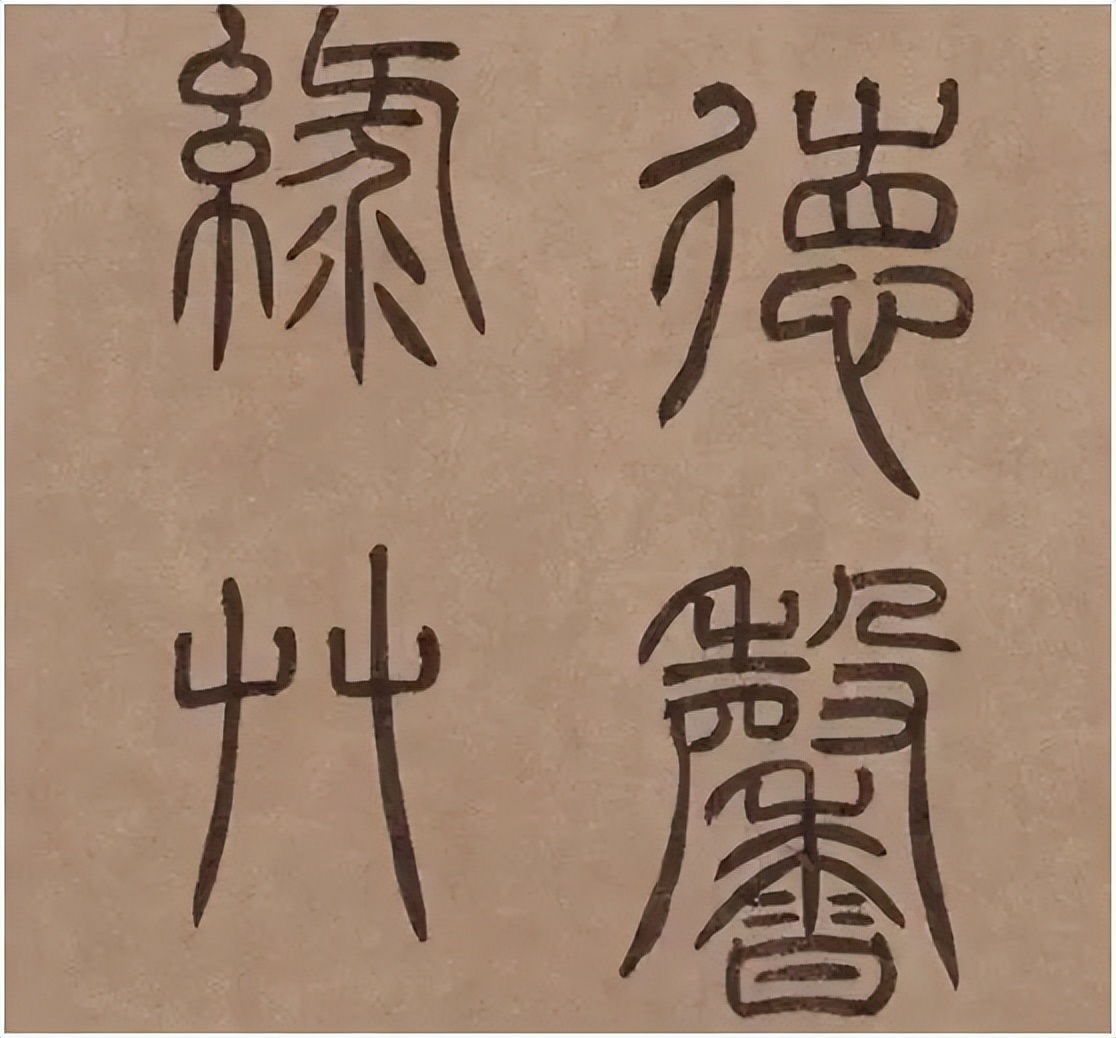 德馨
綠艸